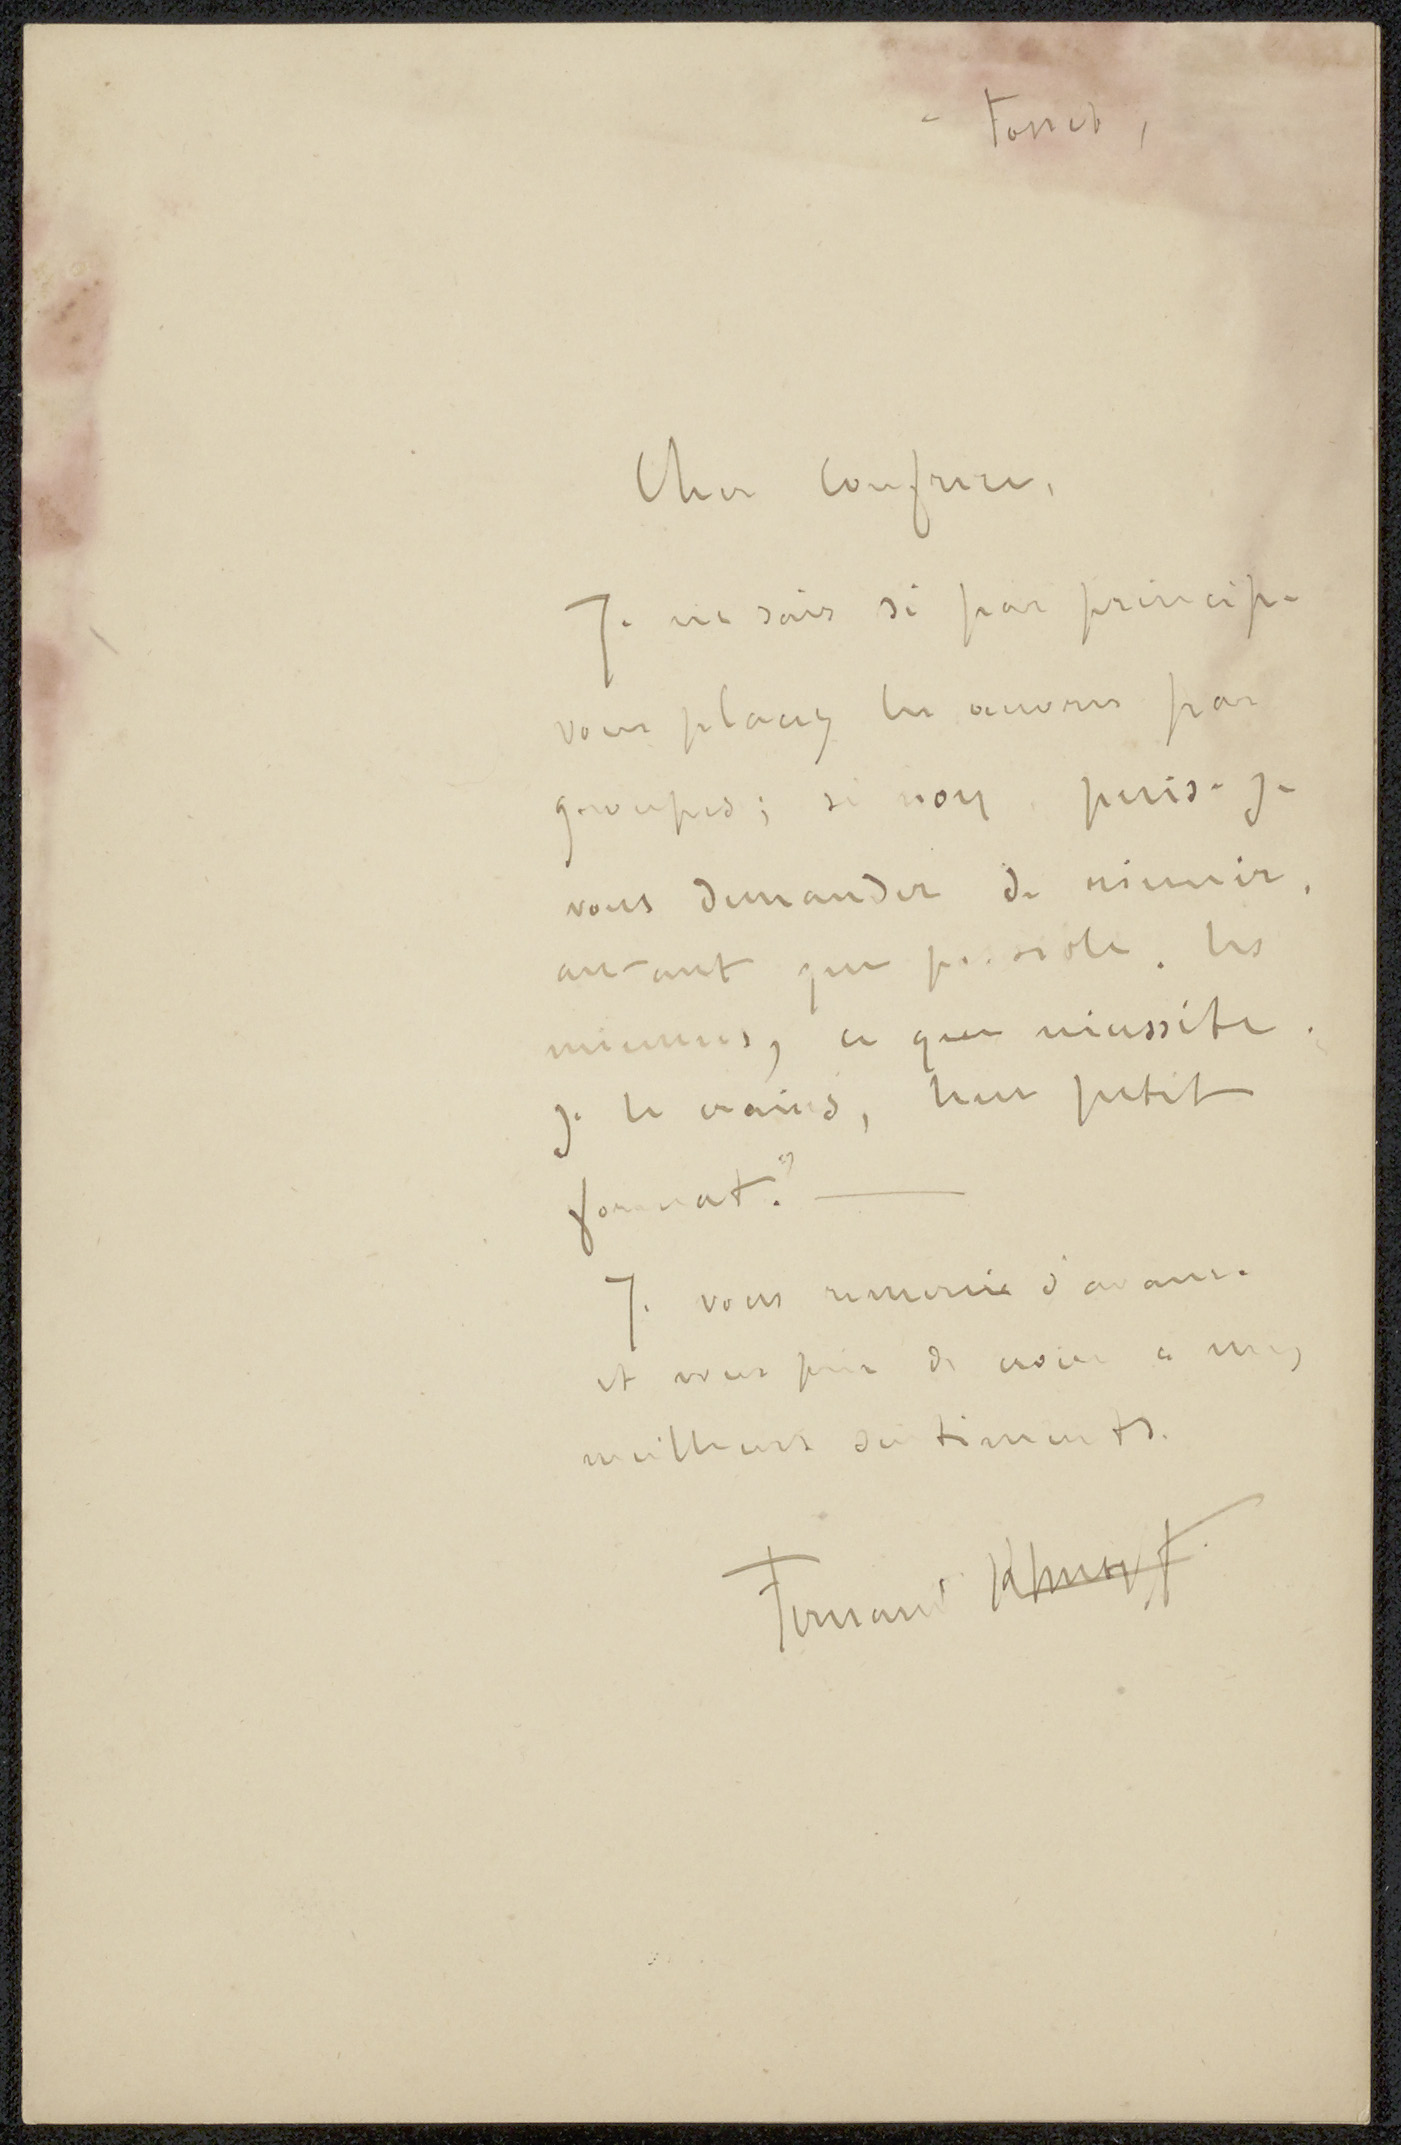 - Fosset,
Cher Confrère,
Je ne sais si par principe
vous placez les œuvres par
groupes; si non, puis-je
vous demander de réunir,
autant que possible, les
miennes, ce que nécessite,
je le crains, leur petit
format.? —
Je vous remercie d'avance
et vous prie de croire à mes
meilleurs sentiments.
Fernand Khnopff.